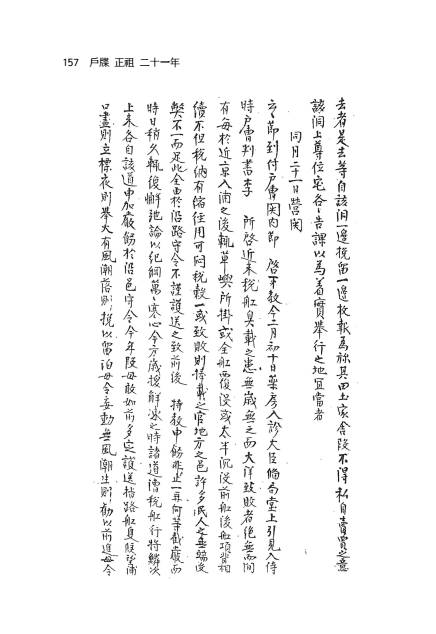 157 戶牒 正祖 二十一年
去者是去等自該洞一邊挽留一邊枚報爲㫆其田土家舍段不得私自賣買之意
該洞上尊位宅各各告課以爲着實擧行之地宜當者
同月二十一日營関
云云節到付戶曹関內節 啓下敎今二月初十日藥房入診大臣備局堂上引見入侍
時戶曹判書李 所啓近來稅船臭載之患無歲無之而大洋致敗者絶無而間
有每於近京入浦之後輒草嶼所掛或全船覆沒或太半沉沒前船後船項背相
續不但稅納有縮任用可悶稅穀一或致敗則俸載之官地方之邑許多民人之無端受
弊不一而足此全由於沿路守令不謹護送之致前後 特敎申飭非止一再何等截嚴而
時日稍久輒復懈弛論以紀綱萬萬寒心今方歲撥解冰之時諸道漕稅船行將鱗次
上來各自該道申加嚴飭於沿邑守令今年段毋敢如前多定護送指路船臭段望浦
口晝則立標夜則擧火有風潮落則挽以留泊毋令妄動無風潮生則勸以前進毋令